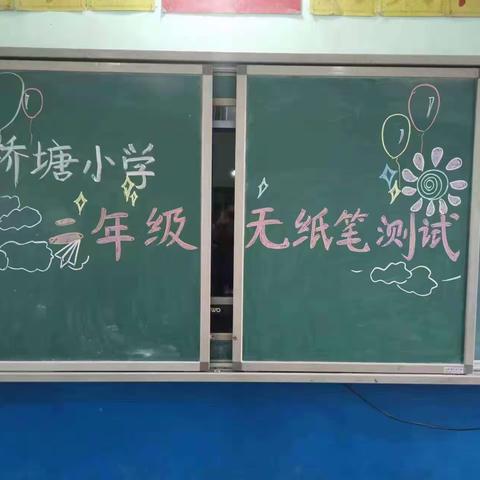 桥塘小学
二年级 无纸笔测试